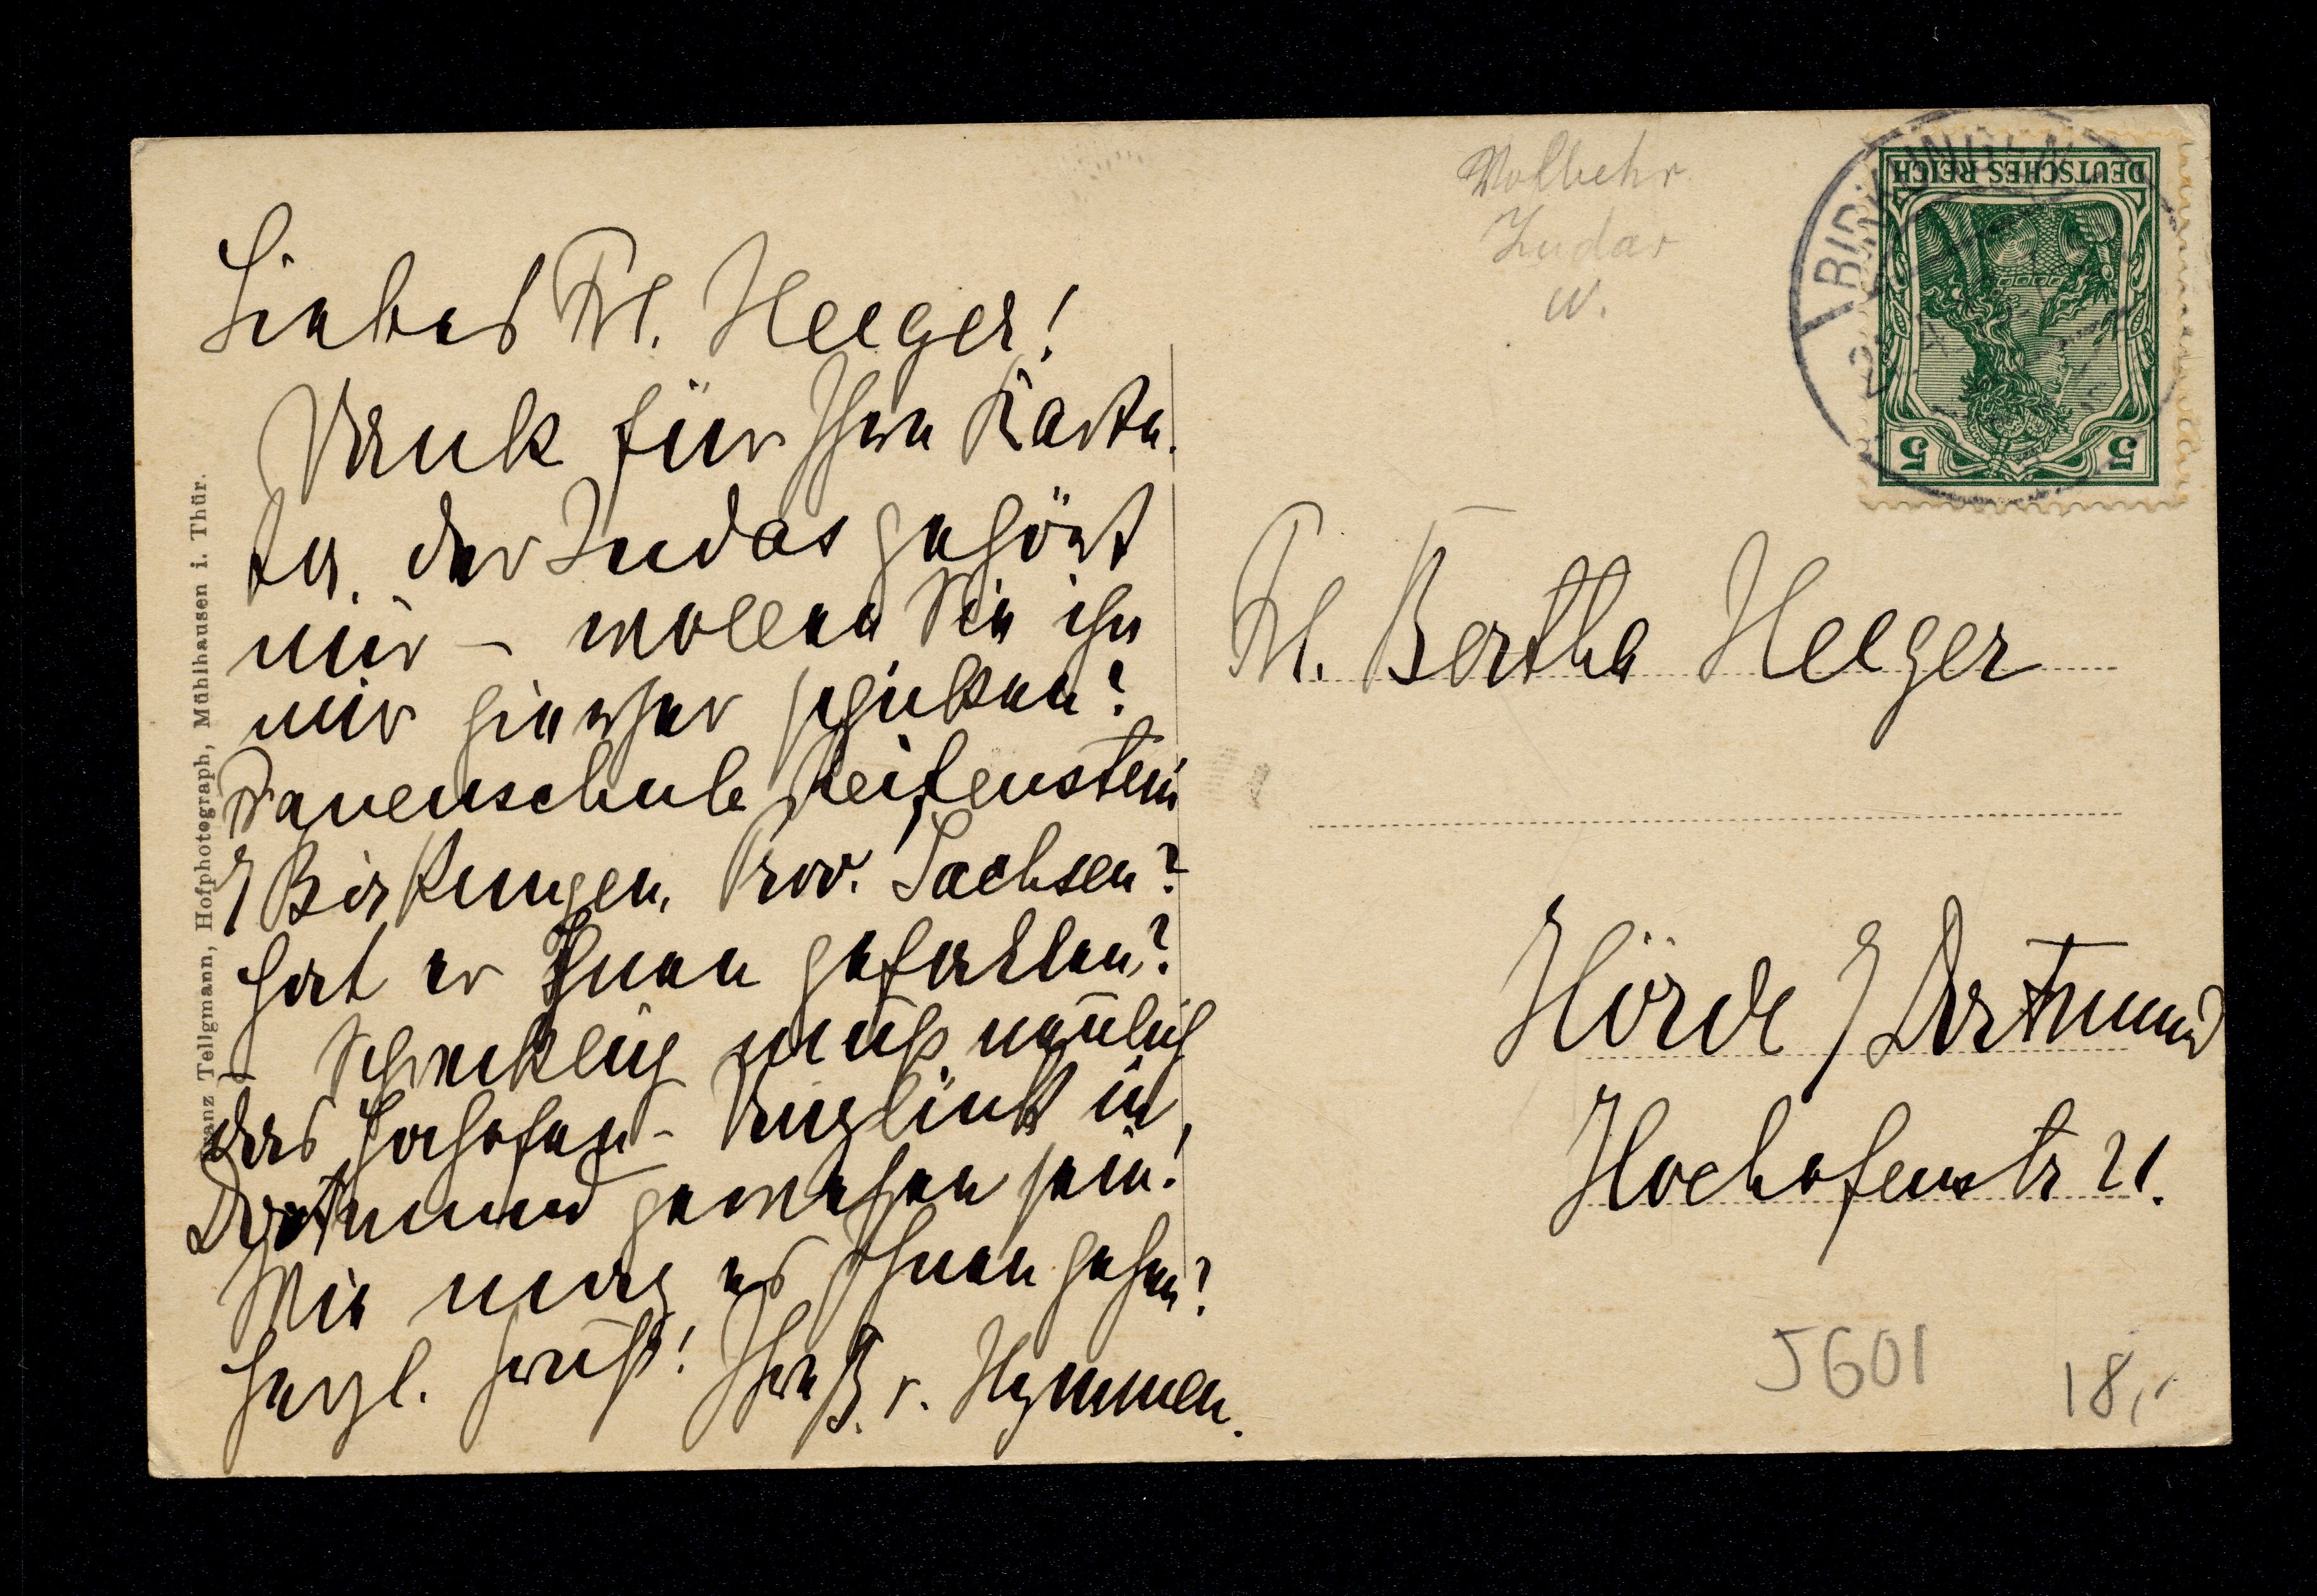 Liebes Frl. Heeger!
Dank für Ihre Karte.
Ja, der Judas gehört
mir – wollen Sie ihn
mir hierher schicken?
Frauenschule Reifenstein
b/ Birkungen, Prov. Sachsen?
Hat er Ihnen gefallen?
Schrecklich muß neulich
das Hochofen-Unglück in
Dortmund gewesen sein!
Wie mag es Ihnen gehen?
Herzl. Gruß! Ihre B. v. Hymmen.
Franz Tellgmann, Hofphotograph, Mühlhausen i. Thür.
Volbehr
Judas
W.
DEUTSCHES REICH
5 5
BIRKUNGEN
Frl. Bertha Heeger
Hörde b/ Dortmund
Hochofenstr 21.
5601
18,-